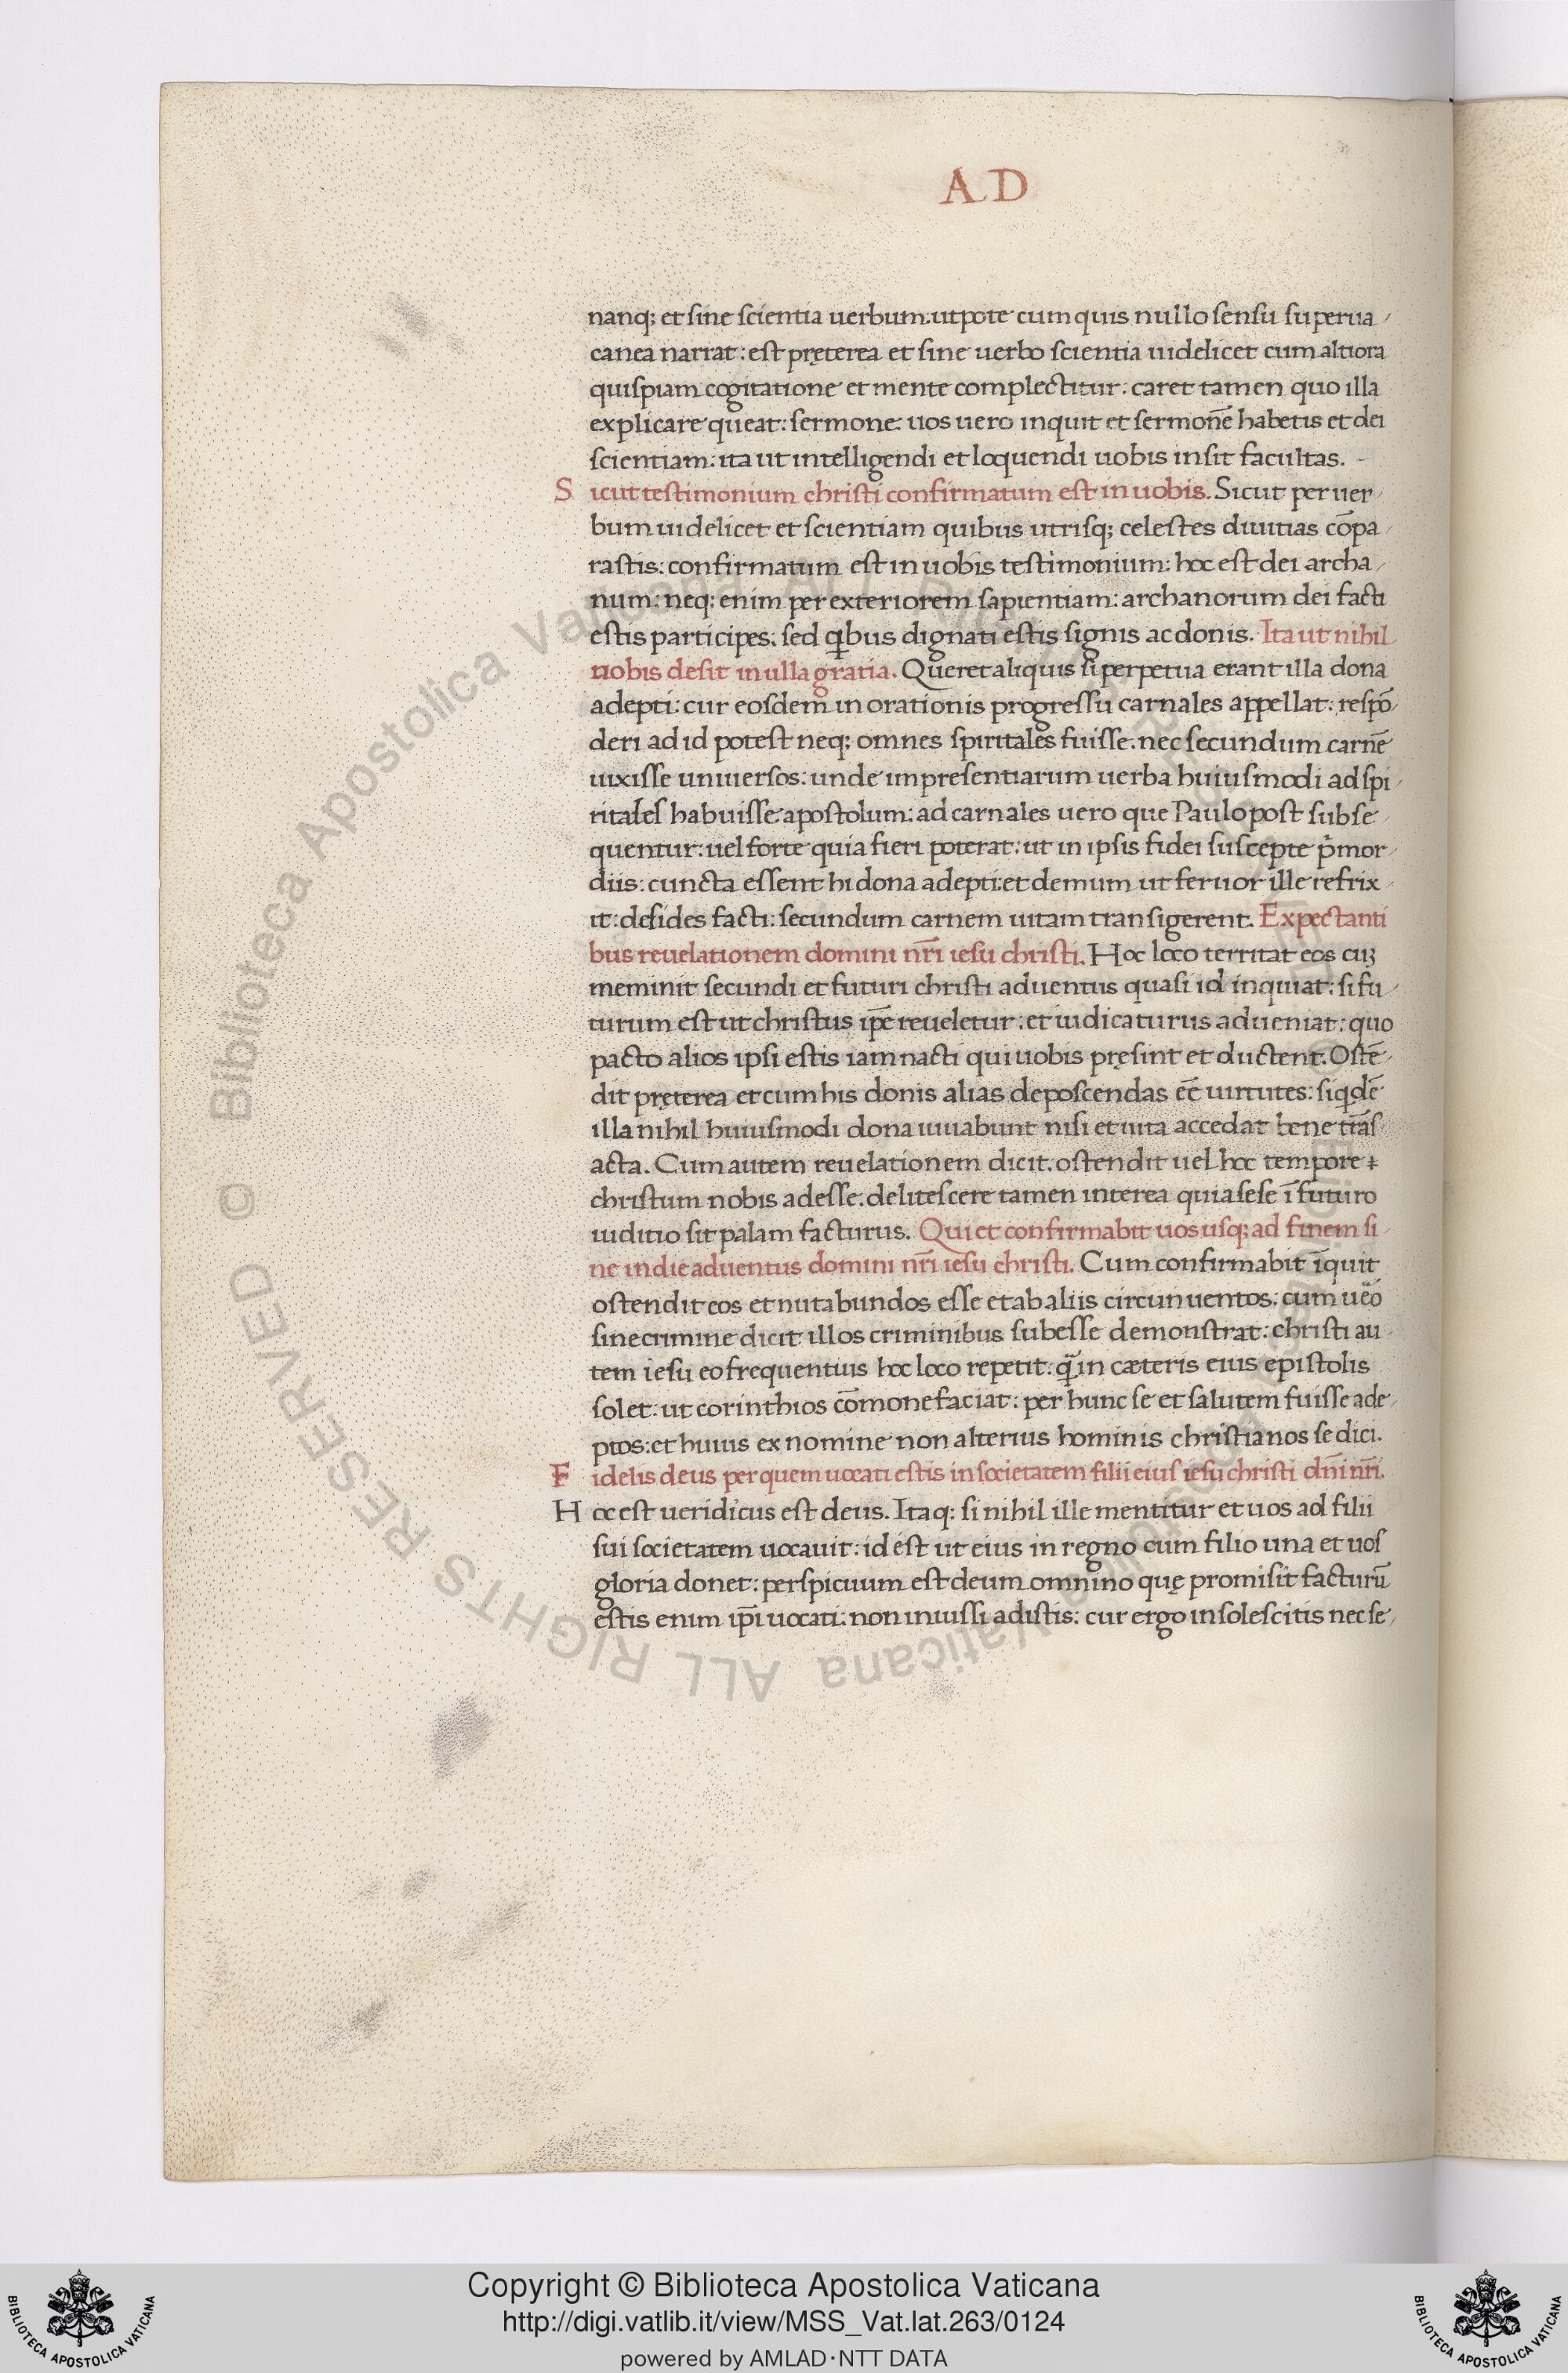 A D
nanq; et sine scientia uerbum: utpote cum quis nullo sensu superua
canea narrat: est pręterea et sine uerbo scientia uidelicet cum altiora
quispiam cogitatione et mente complectitur: caret tamen quo illa
explicare queat: sermone. uos uero inquit et sermonē habetis et dei
scientiam: ita ut intelligendi et loquendi uobis insit facultas.
Sicut testimonium christi confirmatum est in uobis. Sicut per uer
bum uidelicet et scientiam quibus utrisq; celestes diuitias cōpa
rastis: confirmatum est in uobis testimonium: hoc est dei archa
num: neq; enim per exteriorem sapientiam: archanorum dei facti
estis participes: sed qibus dignati estis signis ac donis. Ita ut nihil
uobis desit in ulla gratia. Queret aliquis si perpetua erant illa dona
adepti: cur eosdem in orationis progressu carnales appellat: respō
deri ad id potest neq; omnes spiritales fuisse. nec secundum carnē
uixisse uniuersos: unde impresentiarum uerba huiusmodi ad spi
ritales habuisse apostolum: ad carnales uero que Paulo post subse
quentur: uel forte quia fieri poterat: ut in ipsis fidei suscepte pimor
diis: cuncta essent hi dona adepti: et demum ut feruor ille refrix
it: desides facti: secundum carnem uitam transigerent. Expectanti
bus reuelationem domini nr̄i iesu christi. Hoc loco territat eos cuȝ
meminit secundi et futuri christi aduentus quasi id inquiat: si fu
turum est ut christus ip̄e reueletur: et iudicaturus adueniat: quo
pacto alios ipsi estis iam nacti qui uobis pręsint et ductent. Ostē
dit pręterea et cum his donis alias deposcendas eē uirtutes: siqidē
illa nihil huiusmodi dona iuuabunt nisi et uita accedat bene trās
acta. Cum autem reuelationem dicit. ostendit uel hoc tempore
christum nobis adesse. delitescere tamen interea quia sese ī futuro
iuditio sit palam facturus. Qui et confirmabit uos usq; ad finem si
ne in die aduentus domini nr̄i iesu christi. Cum confirmabit īquit
ostendit eos et nutabundos esse et ab aliis circunuentos: cum ueō
sine crimine dicit illos criminibus subesse demonstrat: christi au
tem iesu eo frequentius hoc loco repetit: q̄ in cæteris eius epistolis
solet: ut corinthios cōmonefaciat: per hunc se et salutem fuisse ade
ptos: et huius ex nomine non alterius hominis christianos se dici.
Fidelis deus per quem uocati estis in societatem filii eius iesu christi dn̄i nr̄i.
Hoc est ueridicus est deus. Itaq; si nihil ille mentitur et uos ad filii
sui societatem uocauit: id est ut eius in regno cum filio una et uos
gloria donet: perspicuum est deum omnino quę promisit facturū
estis enim ip̄i uocati: non iniussi adistis: cur ergo insolescitis nec se
© Biblioteca Apostolica Vaticana ALL RIGHTS RESERVED
Copyright © Biblioteca Apostolica Vaticana
http://digi.vatlib.it/view/MSS_Vat.lat.263/0124
powered by AMLAD·NTT DATA
BIBLIOTECA APOSTOLICA VATICANA
BIBLIOTECA APOSTOLICA VATICANA